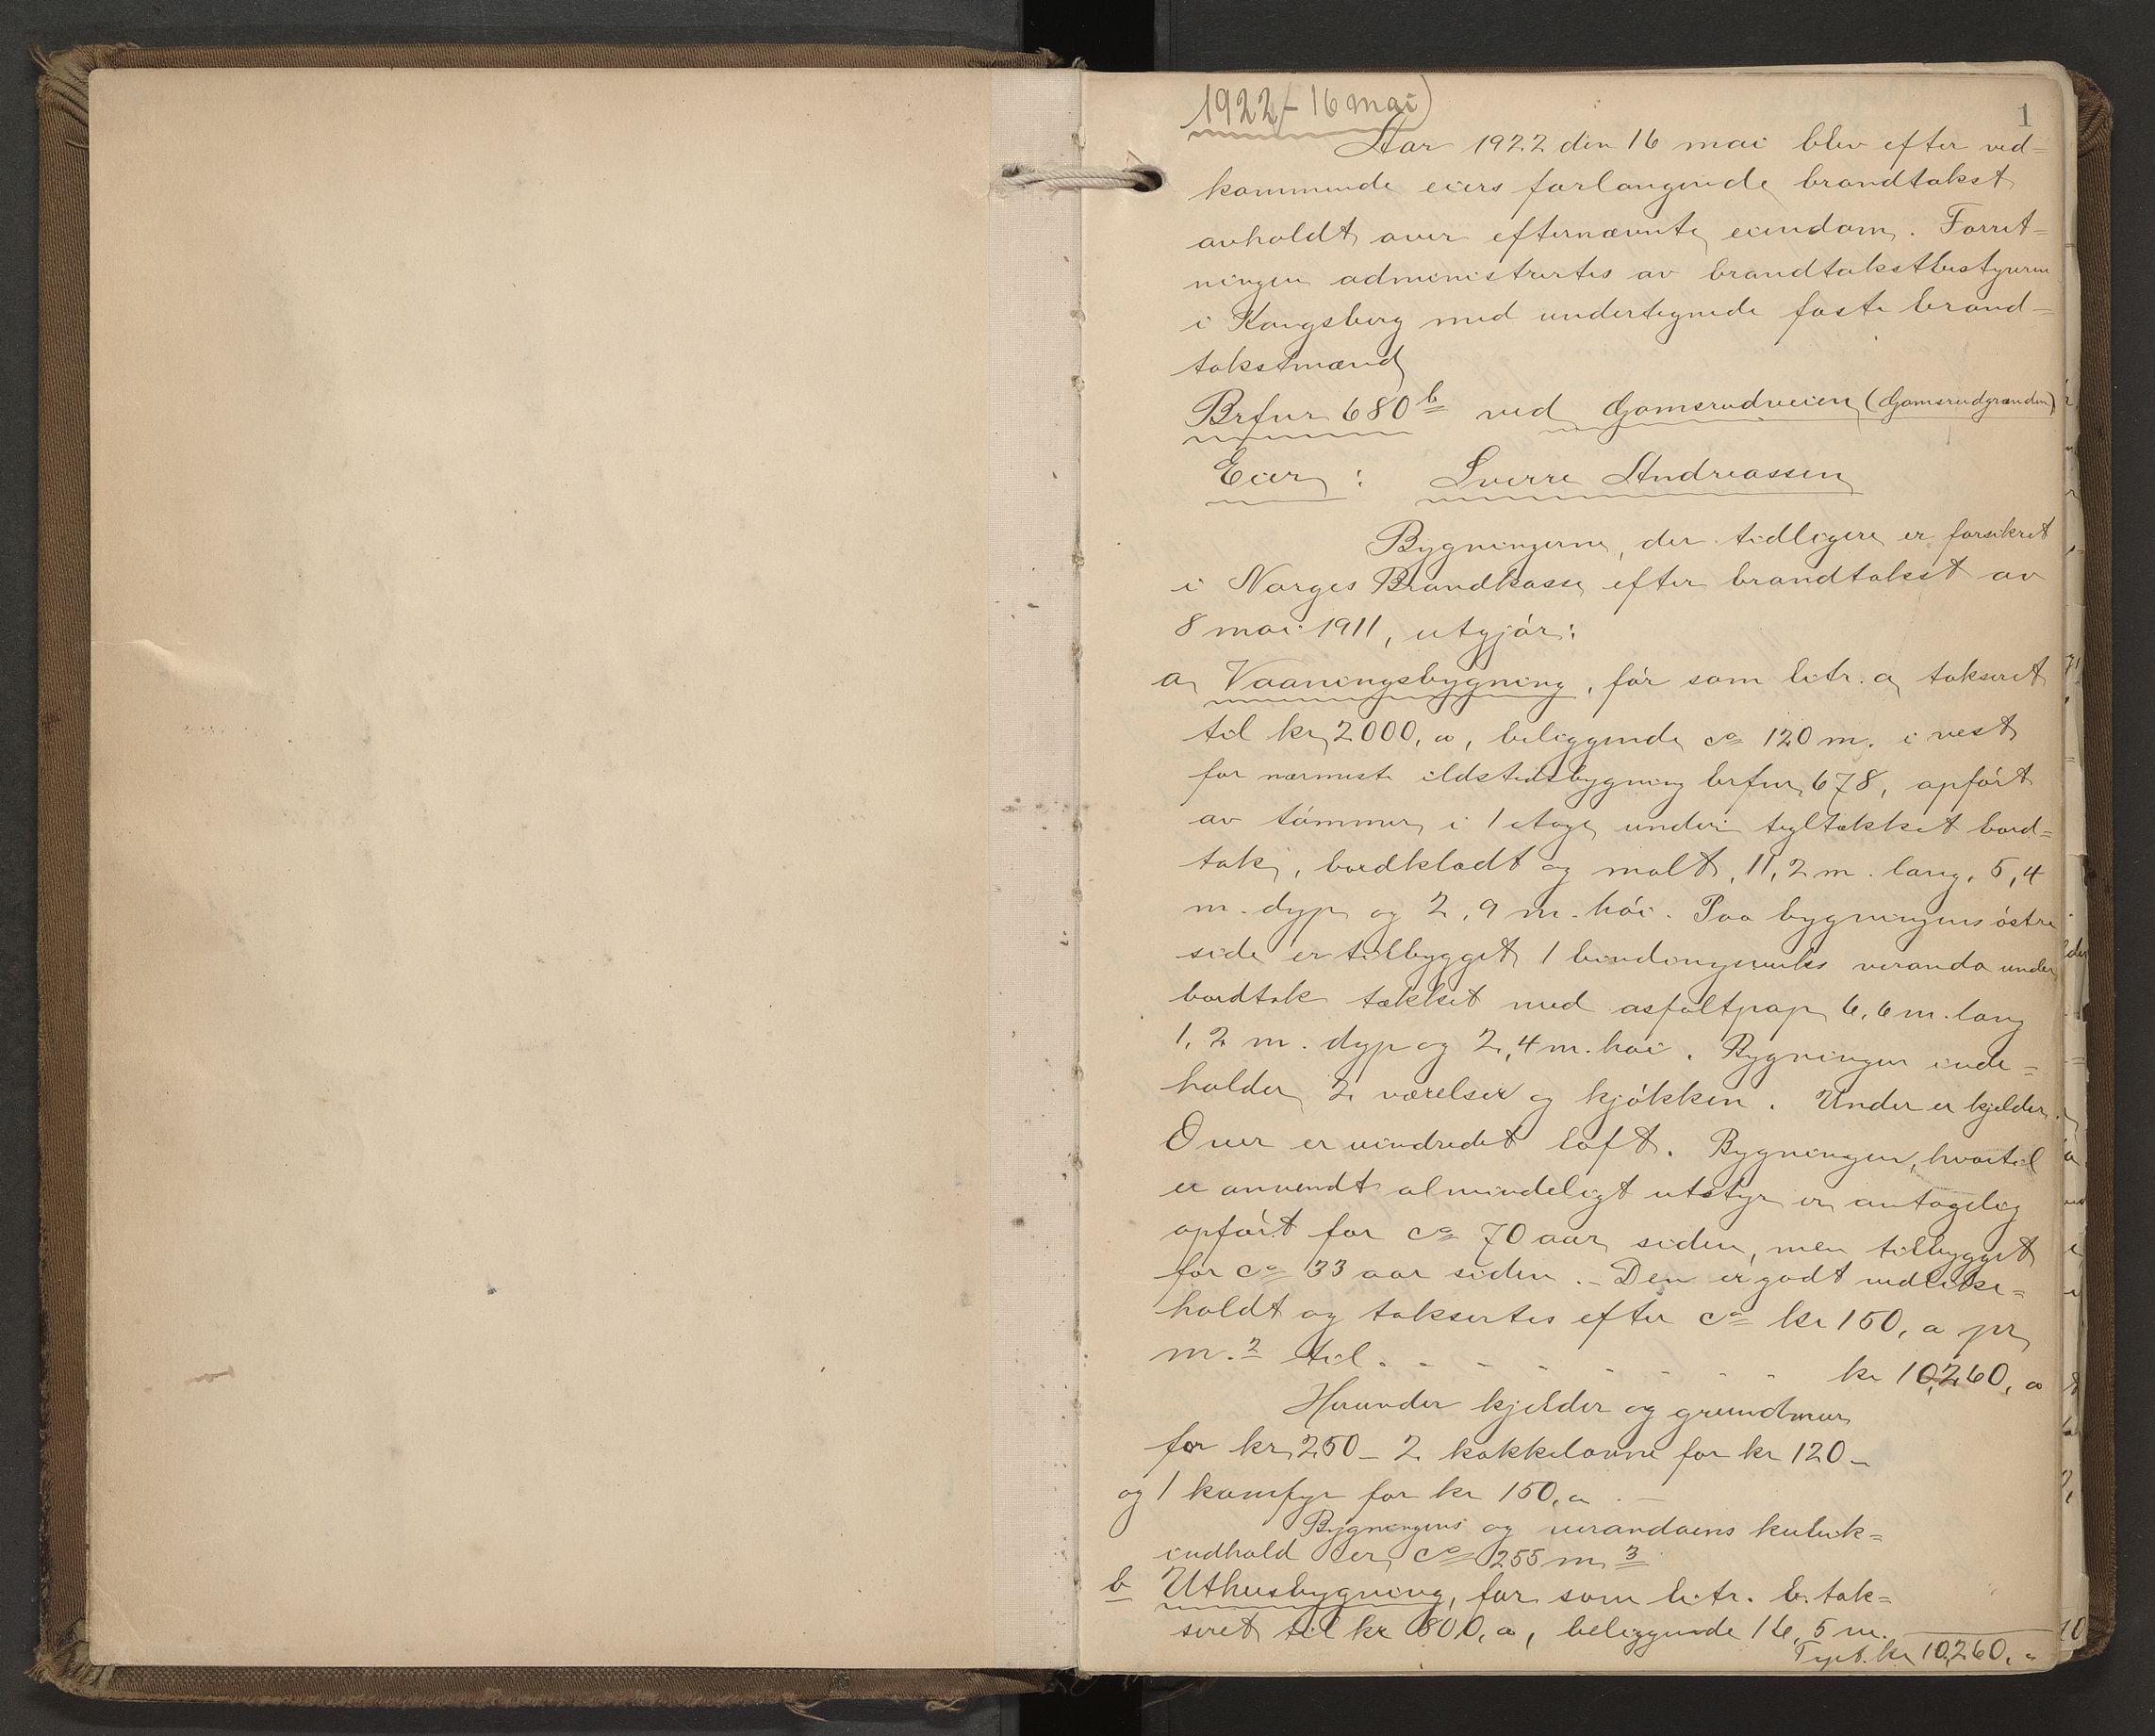 1922 - 16 mai)
1
Aar 1922 den 16 mai blev efter ved=
kommende eiers forlangende brandtakst
avholdt over efternævnte eiendom. Forret=
ningen administrertes av brandtakstbestyreren
i Kongsberg med undertegnede faste brand=
takstmænd
Brfnr 680 b ved Gomsrudveien (Gomsrudgrænden)
Eier : Sverre Andreassen
Bygningerne, der tidligere er forsikret
i Norges Brandkasse efter brandtakst av
8 mai 1911, utgjør:
a, Vaaningsbygning, før som litr. a taksert
til kr 2000,oo, beliggende ca 120 m. i vest
for nærmeste ildstedsbygning brfnr 678, opført
av tømmer i 1 etage under tegltækket bord=
tak, bordklædt og malt, 11,2 m. lang, 5,4
m. dyp og 2,9 m. høi. Paa bygningens østre
side er tilbygget 1 bindingsverks veranda under
bordtak tækket med asfaltpap 6,6 m. lang
1,2 m. dyp og 2,4 m. høi. Bygningen inde=
holder 2 værelser og kjøkken. Under er kjelder.
Over er uindredet loft. Bygningen, hvortil
er anvendt almindeligt utstyr er antagelig
opført for ca 70 aar siden, men tilbygget
for ca 33 aar siden. - Den er godt vedlike=
holdt og taksertes efter ca kr 150,oo pr
m.2 til - - - - - - - - kr 10,260,oo
Herunder kjelder og grundmur
for kr 250 - 2 kakkelovne for kr 120 -
og 1 komfyr for kr 150,oo. -
Bygningens og verandaens kubik=
indhold er ca 255 m 3
b Uthusbygning, før som litr. b. tak=
seret til kr 800,oo, beliggende 16,5 m.
Trpt. kr 10,260,oo